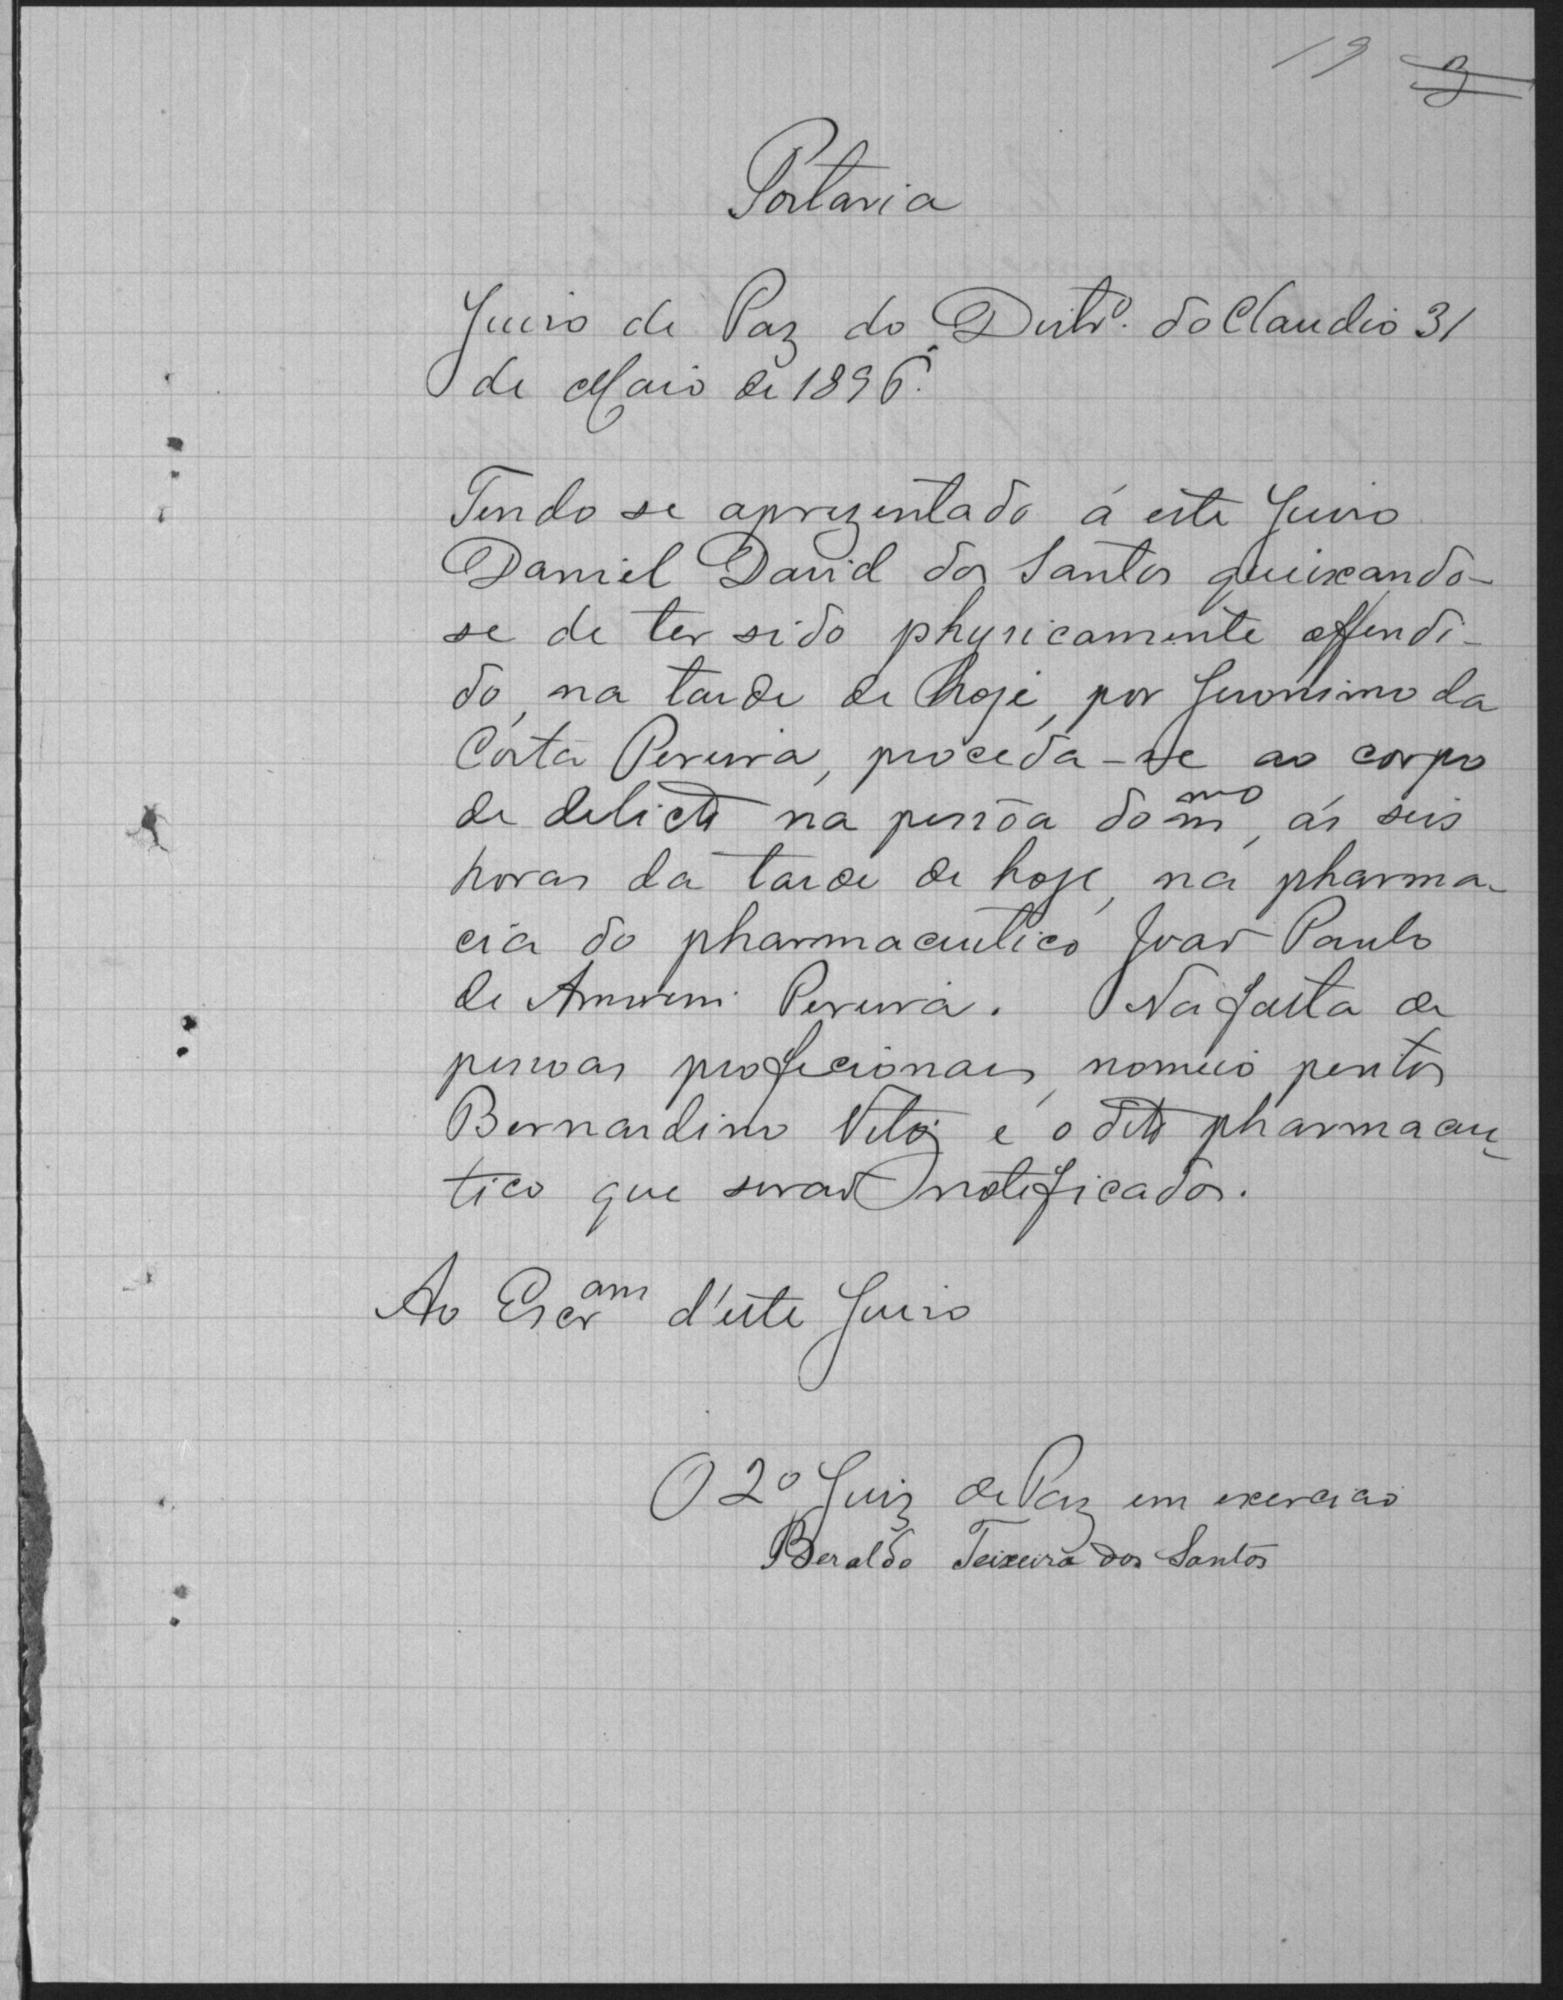 19 3
Portaria
Juiso de Paz do Distrº. do Claudio 31
de Maio de 1896.
Tendo se aprezentado á este Juiso
Daniel David dos Santos queixando-
se de ter sido physicamente offendi-
do, na tarde de hoje, por Jeronimo da
Costa Pereira, proceda-se ao corpo
de delicto na pessôa do mmo, ás seis
horas da tarde de hoje, na pharma-
cia do pharmaceutico João Paulo
de Amorim Pereira. Na falta de
pessoas proficionaes, nomeio peritos
Bernardino e o dito pharmaceu-
tico que serão notificados.
Ao Escram d'este Juiso
O 2º Juiz de Paz em exercicio
Beraldo Teixeira dos Santos